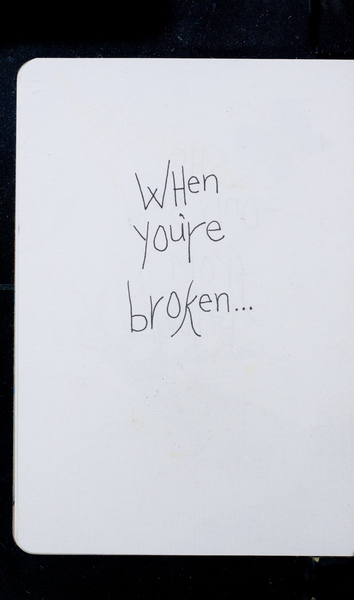 WHen
you're
broken...